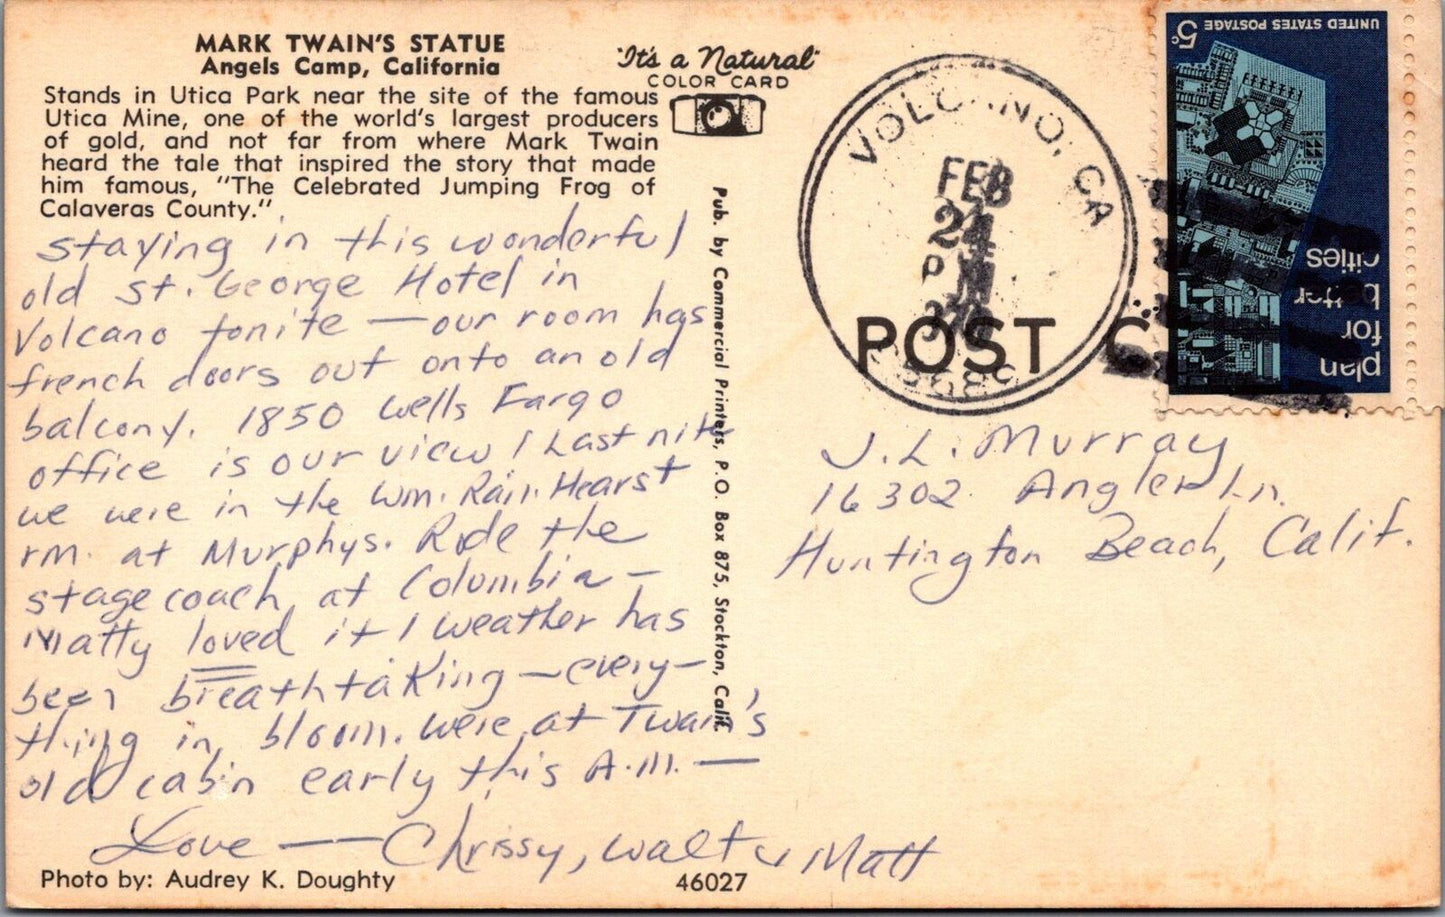 MARK TWAIN'S STATUE
Angels Camp, California
Stands in Utica Park near the site of the famous
Utica Mine, one of the world's largest producers
of gold, and not far from where Mark Twain
heard the tale that inspired the story that made
him famous, "The Celebrated Jumping Frog of
Calaveras County."
"It's a Natural"
COLOR CARD
staying in this wonderful
old St. George Hotel in
Volcano tonite — our room has
french doors out onto an old
balcony. 1850 Wells Fargo
office is our view! Last nite
we were in the Wm. Ran. Hearst
rm. at Murphys. Rode the
stage coach at Columbia —
Matty loved it! Weather has
been breathtaking — every-
thing in bloom. Were at Twain's
old cabin early this A.M. —
Love — Chrissy, Walt & Matt
Photo by: Audrey K. Doughty
46027
Pub. by Commercial Printers, P.O. Box 875, Stockton, Calif.
VOLCANO, CA
FEB
24
PM
POST
UNITED STATES POSTAGE
5c
plan
for
better
cities
J. L. Murray
16302 Angler Ln.
Huntington Beach, Calif.